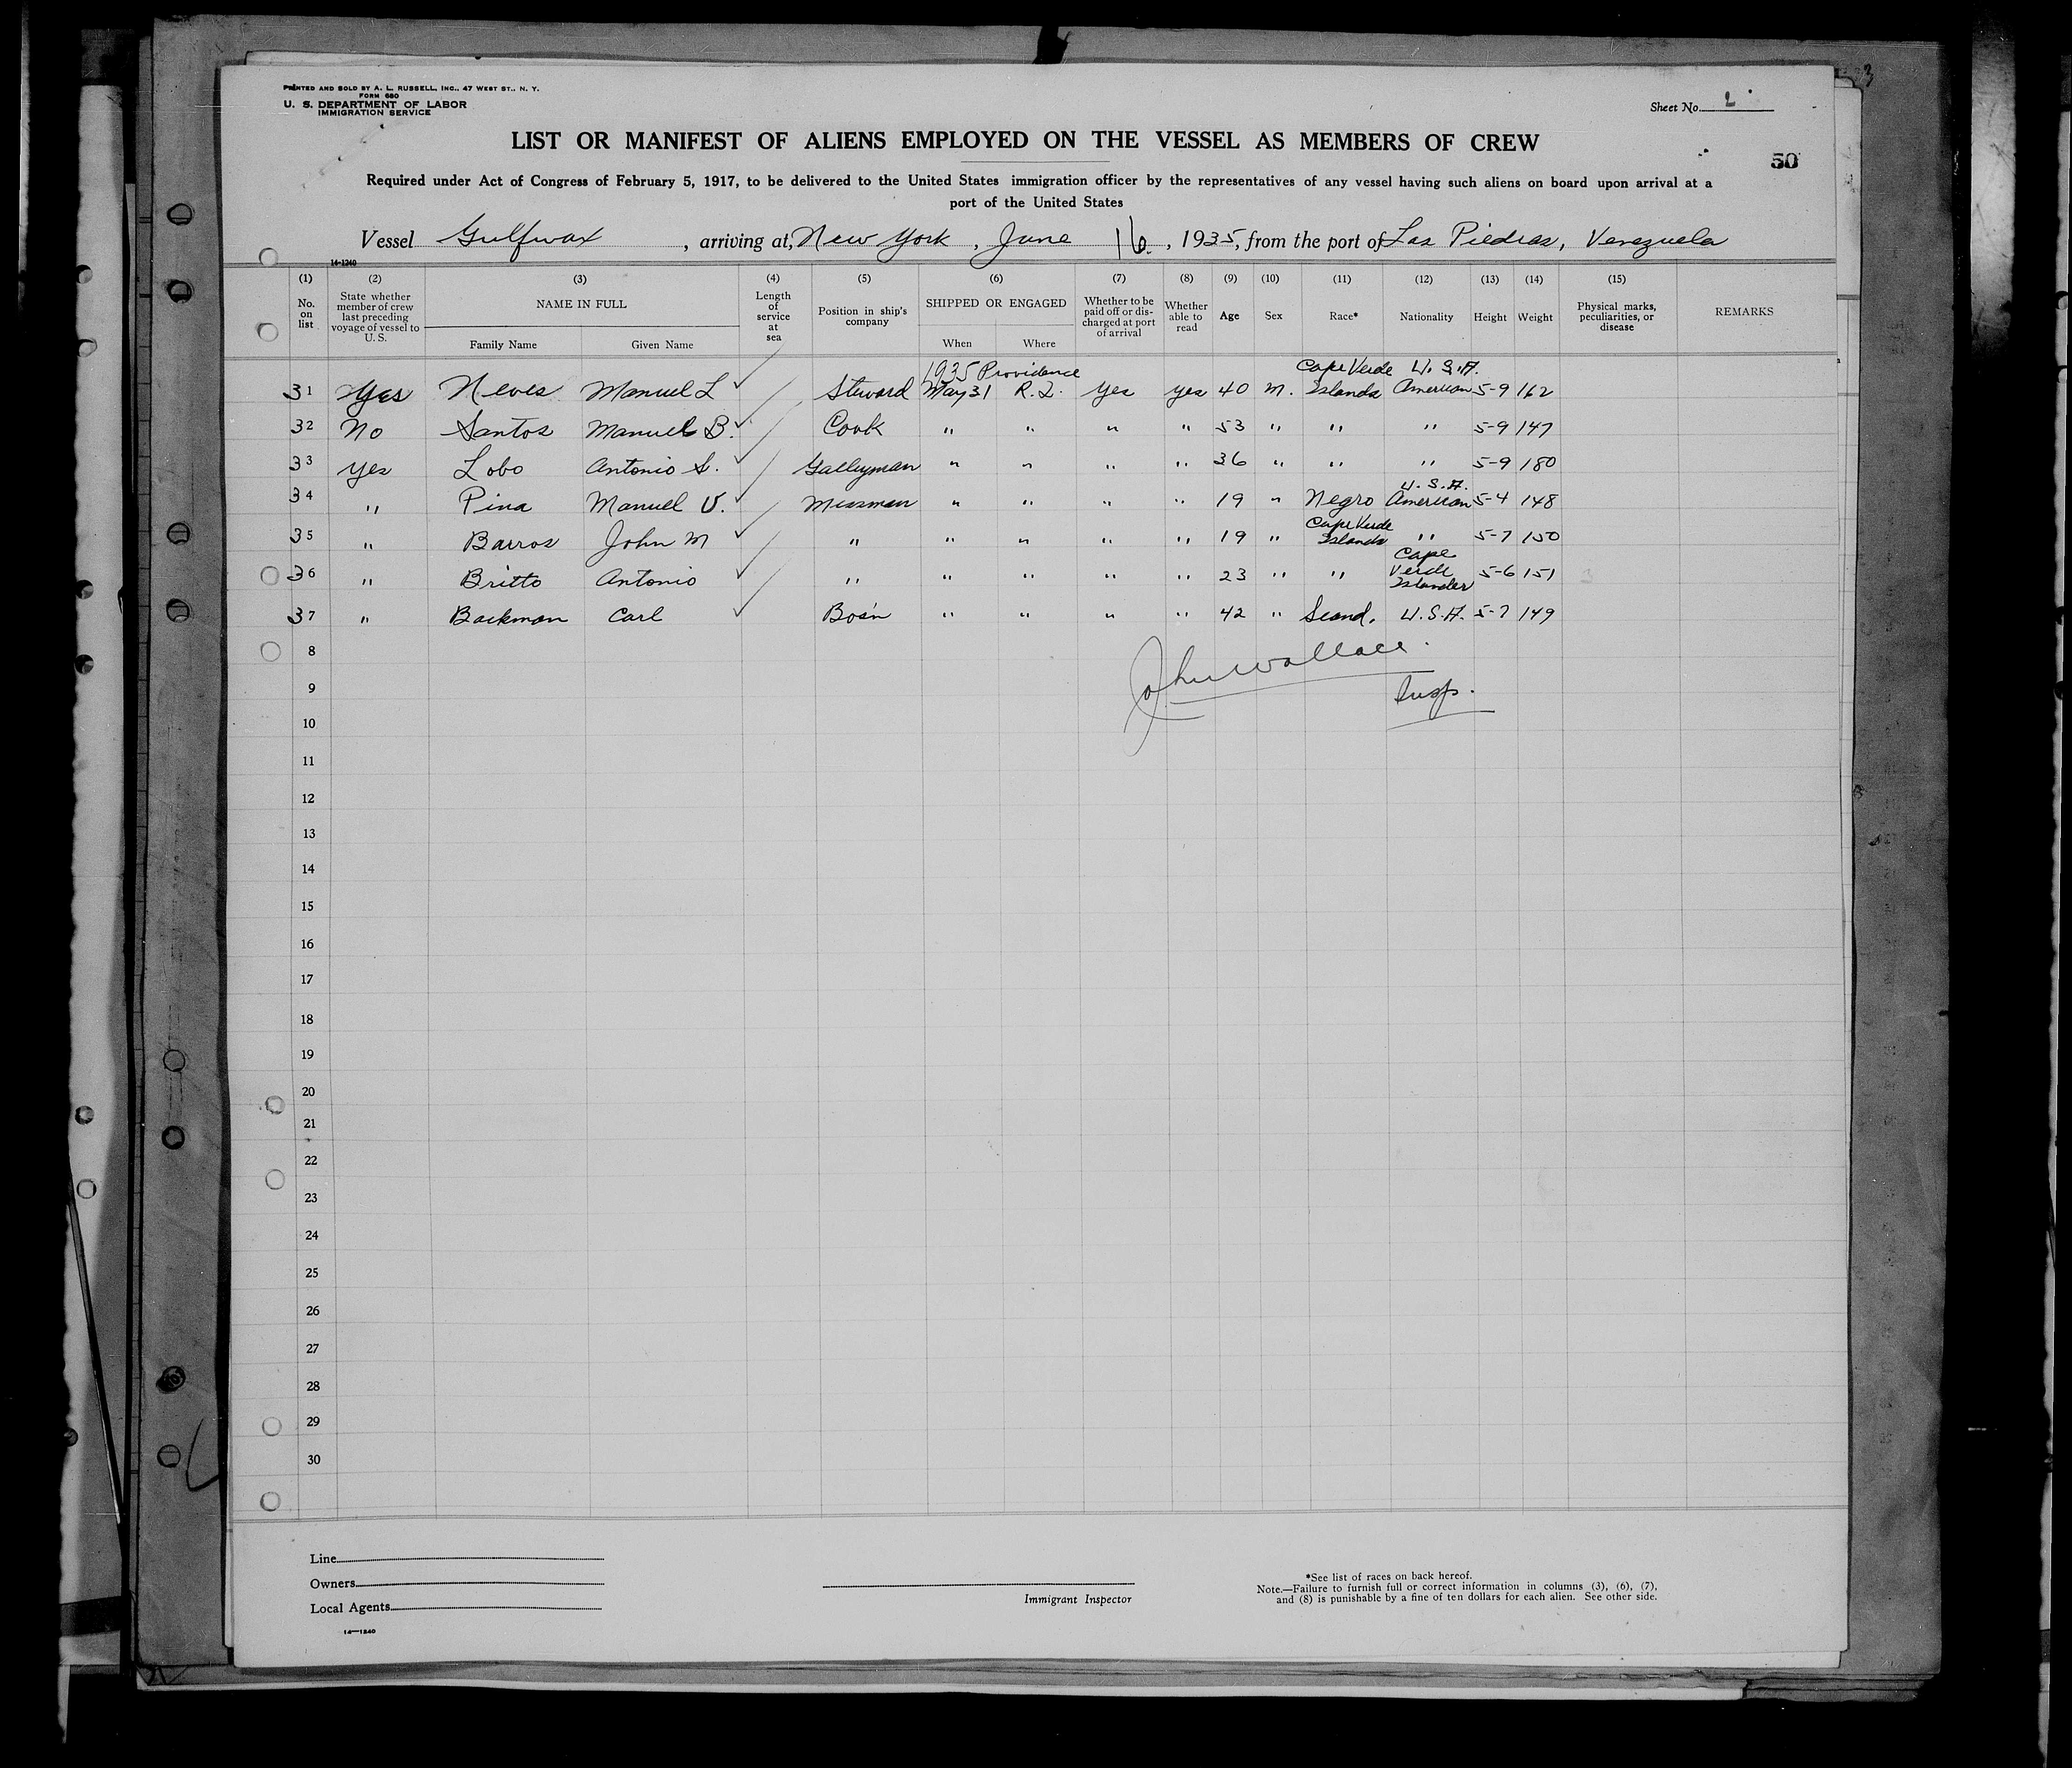 PRINTED AND SOLD BY A. L. RUSSELL, INC., 47 WEST ST., N. Y.
FORM 680
U. S. DEPARTMENT OF LABOR
IMMIGRATION SERVICE
Sheet No. 2
LIST OR MANIFEST OF ALIENS EMPLOYED ON THE VESSEL AS MEMBERS OF CREW
50
Required under Act of Congress of February 5, 1917, to be delivered to the United States immigration officer by the representatives of any vessel having such aliens on board upon arrival at a
port of the United States
Vessel Gulfwax, arriving at, New York, June 16, 1935, from the port of Las Piedras, Venezuela
14-1240
(1) (2) (3) (4) (5) (6) (7) (8) (9) (10) (11) (12) (13) (14) (15)
No. on list State whether member of crew last preceding voyage of vessel to U. S. NAME IN FULL Length of service at sea Position in ship's company SHIPPED OR ENGAGED Whether to be paid off or discharged at port of arrival Whether able to read Age Sex Race* Nationality Height Weight Physical marks, peculiarities, or disease REMARKS
Family Name Given Name When Where
1935 Providence Cape Verde U. S. A.
31 Yes Neves Manuel L Steward May 31 R. I. Yes yes 40 M. Islands American 5-9 162
32 No Santos Manuel B. Cook " " " " 53 " " " 5-9 147
33 Yes Lobo Antonio S. Galleyman " " " " 36 " " " 5-9 180
U. S. A.
34 " Pina Manuel V. Messman " " " " 19 " Negro American 5-4 148
Cape Verde
35 " Barros John M " " " " " 19 " Islands " 5-7 150
Cape
36 " Britto Antonio " " " " " 23 " " Verde 5-6 151
Islander
37 " Backman Carl Bos'n " " " " 42 " Scand. U.S.A. 5-7 149
John Wallace
Insp.
8
9
10
11
12
13
14
15
16
17
18
19
20
21
22
23
24
25
26
27
28
29
30
Line
Owners
Local Agents
14-1240
Immigrant Inspector
*See list of races on back hereof.
Note.—Failure to furnish full or correct information in columns (3), (6), (7),
and (8) is punishable by a fine of ten dollars for each alien. See other side.